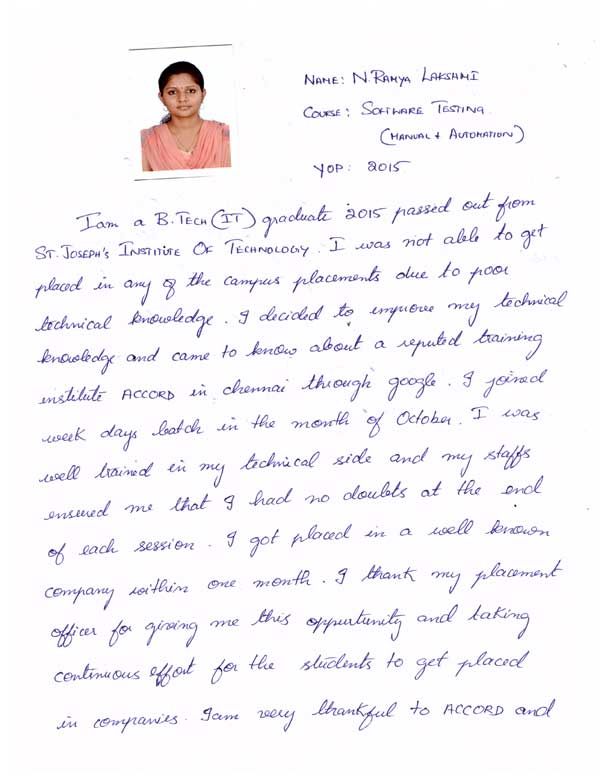 NAME: N. RAMYA LAKSHMI
COURSE: SOFTWARE TESTING
(MANUAL + AUTOMATION)
YOP: 2015
I am a B.TECH (IT) graduate 2015 passed out from
ST. JOSEPH'S INSTITUTE OF TECHNOLOGY. I was not able to get
placed in any of the campus placements due to poor
technical knowledge. I decided to improve my technical
knowledge and came to know about a reputed training
institute ACCORD in chennai through google. I joined
week days batch in the month of October. I was
well trained in my technical side and my staffs
ensured me that I had no doubts at the end
of each session. I got placed in a well known
company within one month. I thank my placement
officer for giving me this oppurtunity and taking
continuous effort for the students to get placed
in companies. I am very thankful to ACCORD and